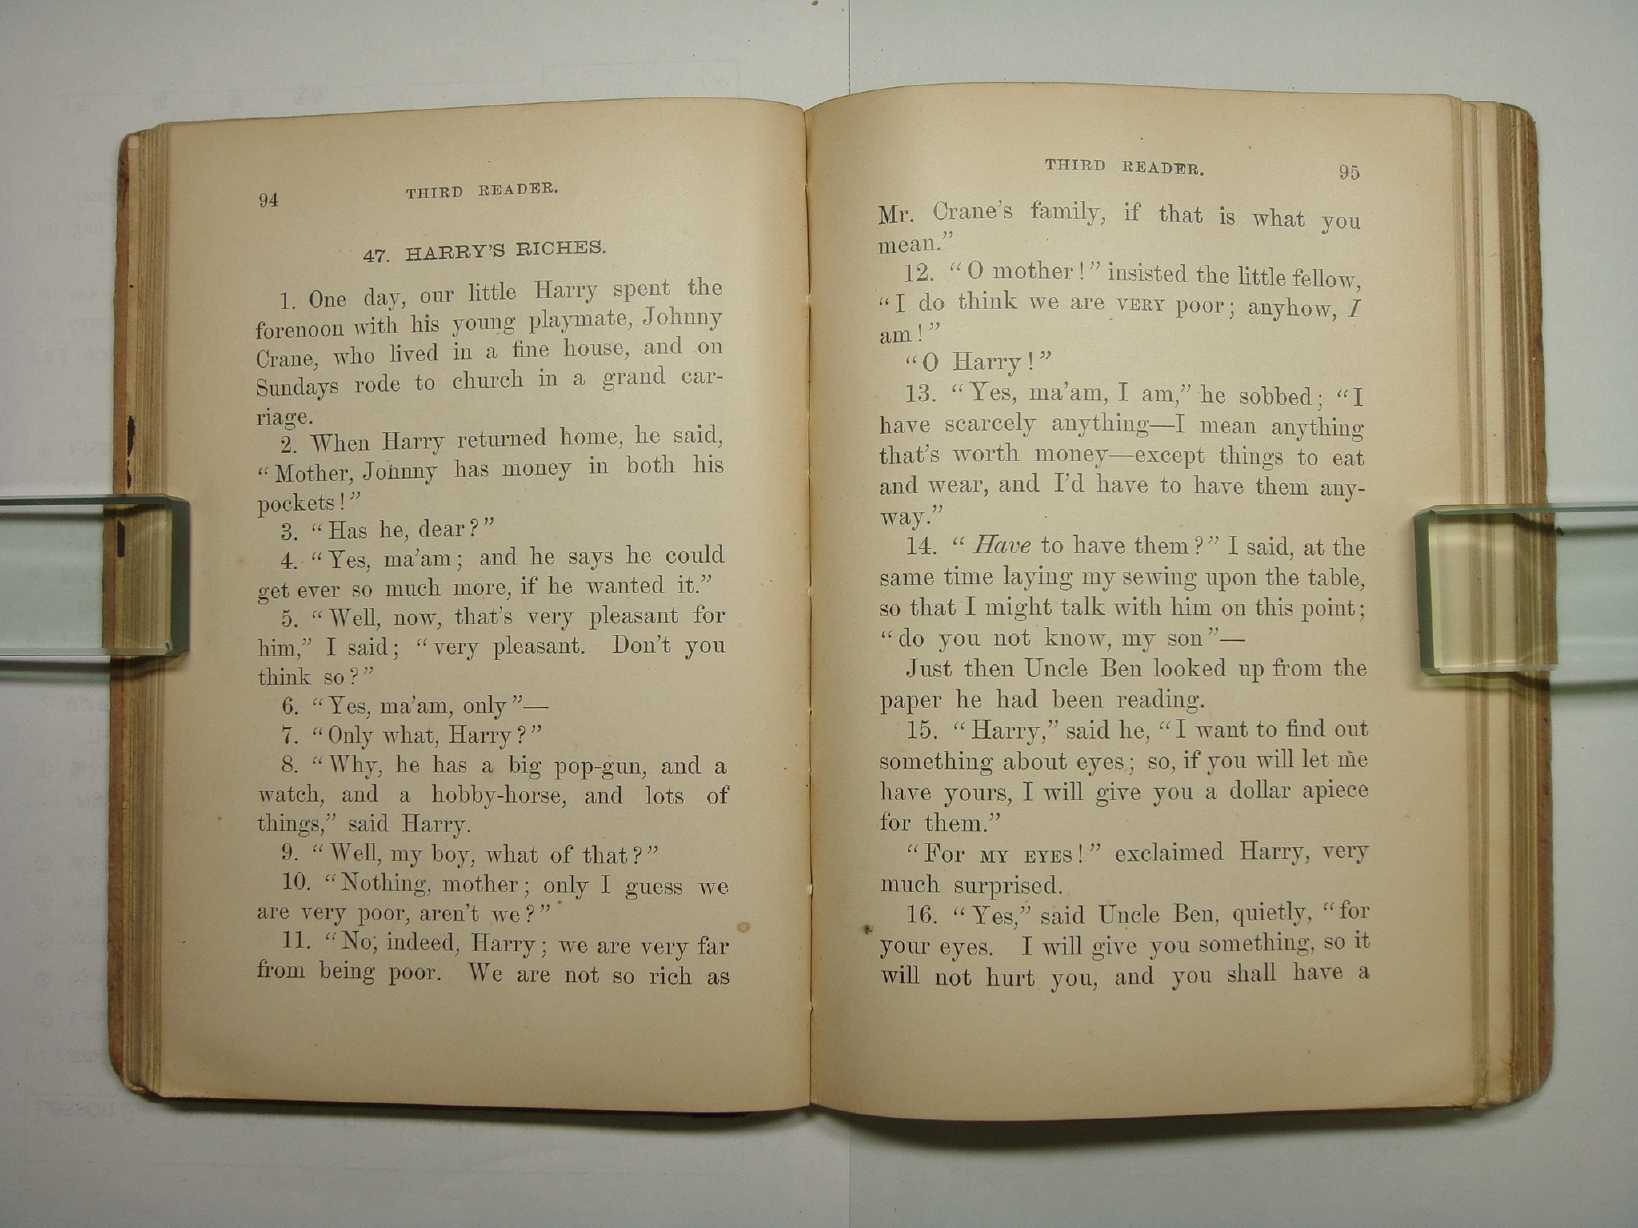 94 THIRD READER.
47. HARRY'S RICHES.
1. One day, our little Harry spent the
forenoon with his young playmate, Johnny
Crane, who lived in a fine house, and on
Sundays rode to church in a grand car-
riage.
2. When Harry returned home, he said,
“Mother, Johnny has money in both his
pockets!”
3. “Has he, dear?”
4. “Yes, ma'am; and he says he could
get ever so much more, if he wanted it.”
5. “Well, now, that's very pleasant for
him,” I said; “very pleasant. Don't you
think so?”
6. “Yes, ma'am, only”—
7. “Only what, Harry?”
8. “Why, he has a big pop-gun, and a
watch, and a hobby-horse, and lots of
things,” said Harry.
9. “Well, my boy, what of that?”
10. “Nothing, mother; only I guess we
are very poor, aren't we?”
11. “No, indeed, Harry; we are very far
from being poor. We are not so rich as
THIRD READER. 95
Mr. Crane's family, if that is what you
mean.”
12. “O mother!” insisted the little fellow,
“I do think we are VERY poor; anyhow, I
am!”
“O Harry!”
13. “Yes, ma'am, I am,” he sobbed; “I
have scarcely anything—I mean anything
that's worth money—except things to eat
and wear, and I'd have to have them any-
way.”
14. “Have to have them?” I said, at the
same time laying my sewing upon the table,
so that I might talk with him on this point;
“do you not know, my son”—
Just then Uncle Ben looked up from the
paper he had been reading.
15. “Harry,” said he, “I want to find out
something about eyes; so, if you will let me
have yours, I will give you a dollar apiece
for them.”
“For MY EYES!” exclaimed Harry, very
much surprised.
16. “Yes,” said Uncle Ben, quietly, “for
your eyes. I will give you something, so it
will not hurt you, and you shall have a